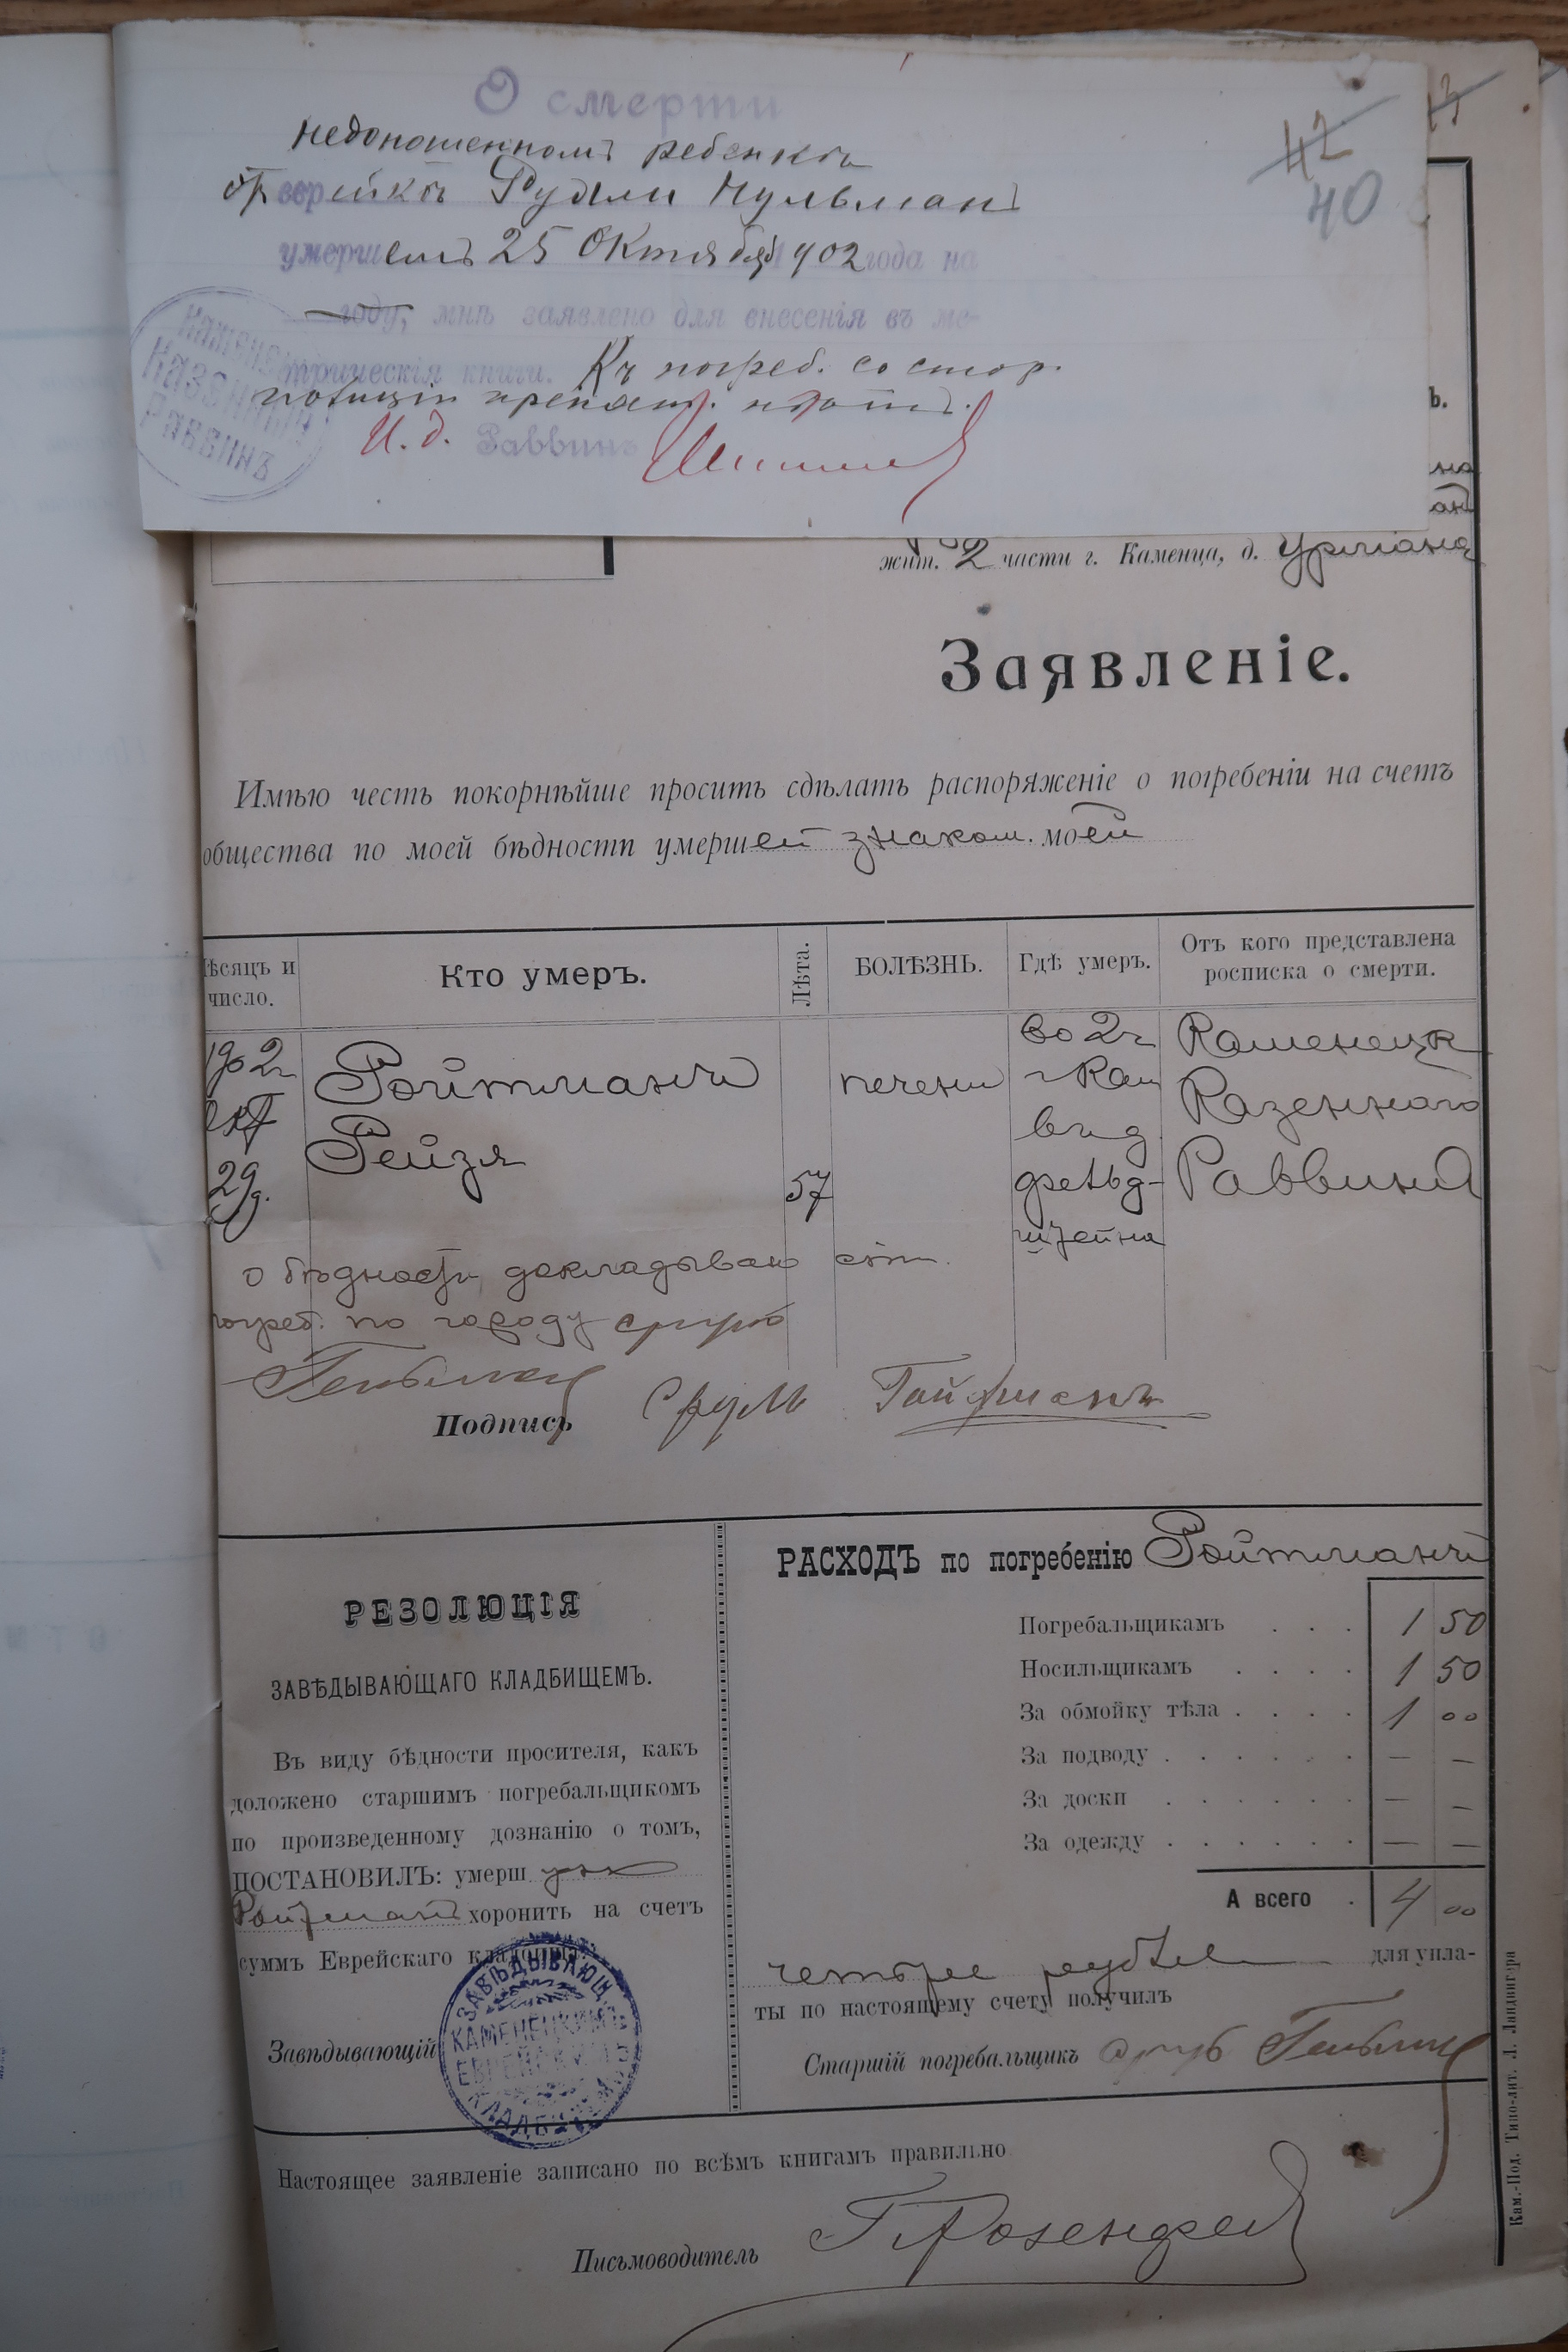 О смерти
недоношенномъ ребенкѣ
еврейкѣ Рудли Нульманъ
умершемъ 25 Октября 1902 года на
году, мнѣ заявлено для внесенія въ ме-
трическія книги. Къ погреб. со стор.
полиціи препят. нѣтъ.
И. д. Раввинъ
Казенный
Раввинъ
42
40
жит. 2 части г. Каменца, д. Урмана
Заявленіе.
Имѣю честь покорнѣйше просить сдѣлать распоряженіе о погребеніи на счетъ
общества по моей бѣдности умершей знаком. моей
мѣсяцъ и число.
Кто умеръ.
Лѣта.
БОЛѢЗНЬ.
Гдѣ умеръ.
Отъ кого представлена
росписка о смерти.
1902 г
Окт
29 д.
Ройтманъ
Рейзя
57
печени
во 2 ч
г Кам
въ д
фельд-
штейна
Каменецк
Казеннаго
Раввина
о бѣдности докладываю ст.
погреб. по городу
Подпись Сруль Гойхманъ
РЕЗОЛЮЦІЯ
ЗАВѢДЫВАЮЩАГО КЛАДБИЩЕМЪ.
Въ виду бѣдности просителя, какъ
доложено старшимъ погребальщикомъ
по произведенному дознанію о томъ,
ПОСТАНОВИЛЪ: умерш
Ройтманъ хоронить на счетъ
суммъ Еврейскаго кладбища.
Завѣдывающій
ЗАВѢДЫВАЮЩ.
КАМЕНЕЦКИМЪ
ЕВРЕЙСКИМЪ
КЛАДБИЩЕМЪ
РАСХОДЪ по погребенію Ройтманъ
Погребальщикамъ . . . 1 50
Носильщикамъ . . . . 1 50
За обмойку тѣла . . . . 1 00
За подводу . . . . . . — —
За доски . . . . . . — —
За одежду . . . . . . — —
А всего . 4 00
четыре рубля для упла-
ты по настоящему счету получилъ
Старшій погребальщикъ
Настоящее заявленіе записано по всѣмъ книгамъ правильно
Письмоводитель Г. Розенфел
Кам.-Под. Типо-лит. Л. Ландвигера